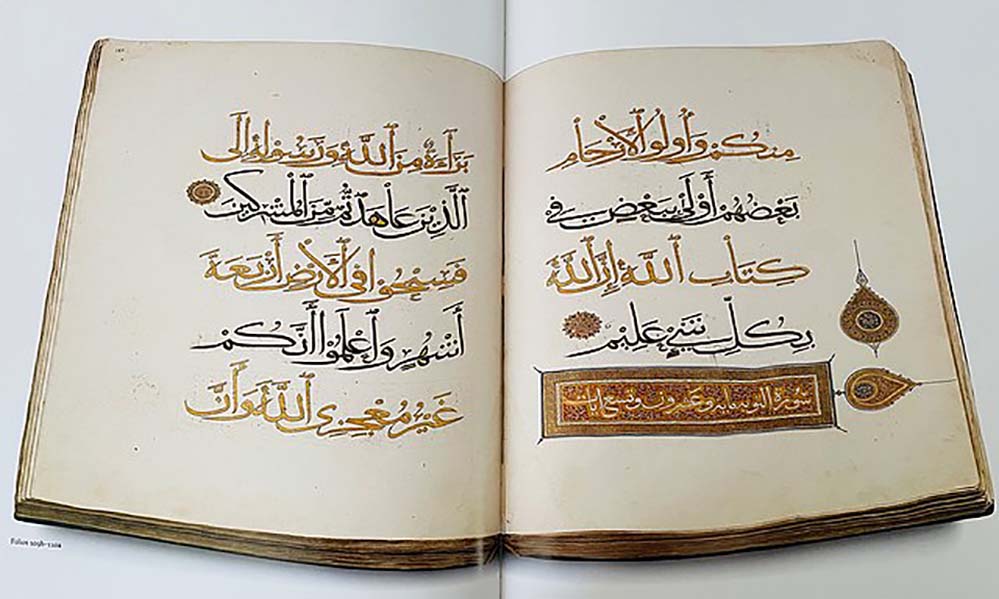 مِنكُمْ وَأُولُو الْأَرْحَامِ
بَعْضُهُمْ أَوْلَىٰ بِبَعْضٍ فِي
كِتَابِ اللَّهِ إِنَّ اللَّهَ
بِكُلِّ شَيْءٍ عَلِيمٌ
سورة التوبة مائة وعشرون وتسع آيات
بَرَاءَةٌ مِنَ اللَّهِ وَرَسُولِهِ إِلَى
الَّذِينَ عَاهَدْتُمْ مِنَ الْمُشْرِكِينَ
فَسِيحُوا فِي الْأَرْضِ أَرْبَعَةَ
أَشْهُرٍ وَاعْلَمُوا أَنَّكُمْ
غَيْرُ مُعْجِزِي اللَّهِ وَأَنَّ
Folios 109b–110a